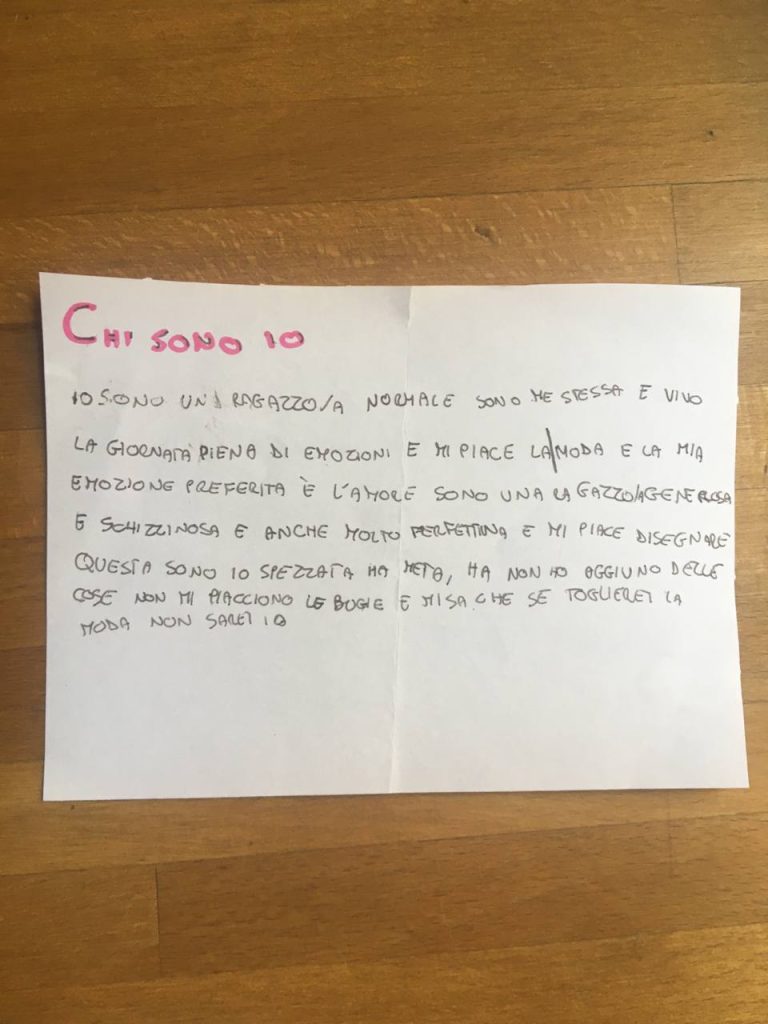 CHI SONO IO
IO SONO UN RAGAZZO/A NORMALE SONO ME STESSA E VIVO
LA GIORNATA PIENA DI EMOZIONI E MI PIACE LA MODA E LA MIA
EMOZIONE PREFERITA È L'AMORE SONO UNA RAGAZZO/A GENEROSA
E SCHIZZINOSA E ANCHE MOLTO PERFETTINA E MI PIACE DISEGNARE
QUESTA SONO IO SPEZZATA HA METÀ, HA NON HO AGGIUNO DELLE
COSE NON MI PIACCIONO LE BUGIE E MISA CHE SE TOGLIEREI LA
MODA NON SAREI IO